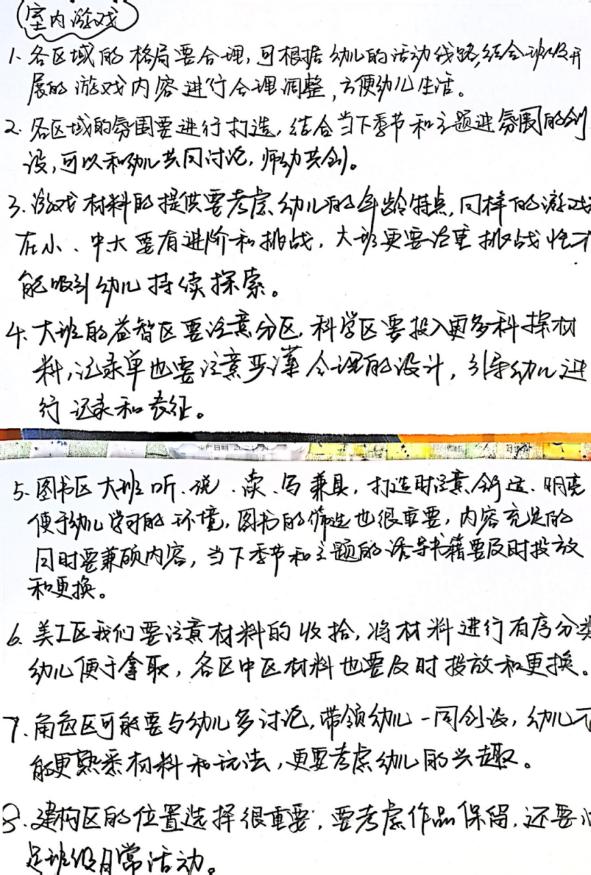 室内游戏
1. 各区域的格局要合理,可根据幼儿的活动线路,结合班级开
展的游戏内容进行合理调整,方便幼儿生活。
2. 各区域的氛围要进行打造,结合当下季节和主题进氛围的创
设,可以和幼儿共同讨论,师幼共创。
3. 游戏材料的提供要考虑幼儿的年龄特点,同样的游戏
在小、中大要有进阶和挑战,大班更要注重挑战性才
能吸引幼儿持续探索。
4. 大班的益智区要注意分区,科学区要投入更多科探材
料,记录单也要注意严谨合理的设计,引导幼儿进
行记录和表征。
5. 图书区大班听、说、读、写兼具,打造时注意舒适、明亮
便于幼儿学习的环境,图书的筛选也很重要,内容充足的
同时要兼顾内容,当下季节和主题的 书籍要及时投放
和更换。
6. 美工区我们要注意材料的收拾,将材料进行有序分类
幼儿便于拿取,各区中区材料也要及时投放和更换。
7. 角色区可能要与幼儿多讨论,带领幼儿一同创设,幼儿才
能更熟悉材料和玩法,更要考虑幼儿的兴趣。
8. 建构区的位置选择很重要,要考虑作品保留,还要
足班级日常活动。